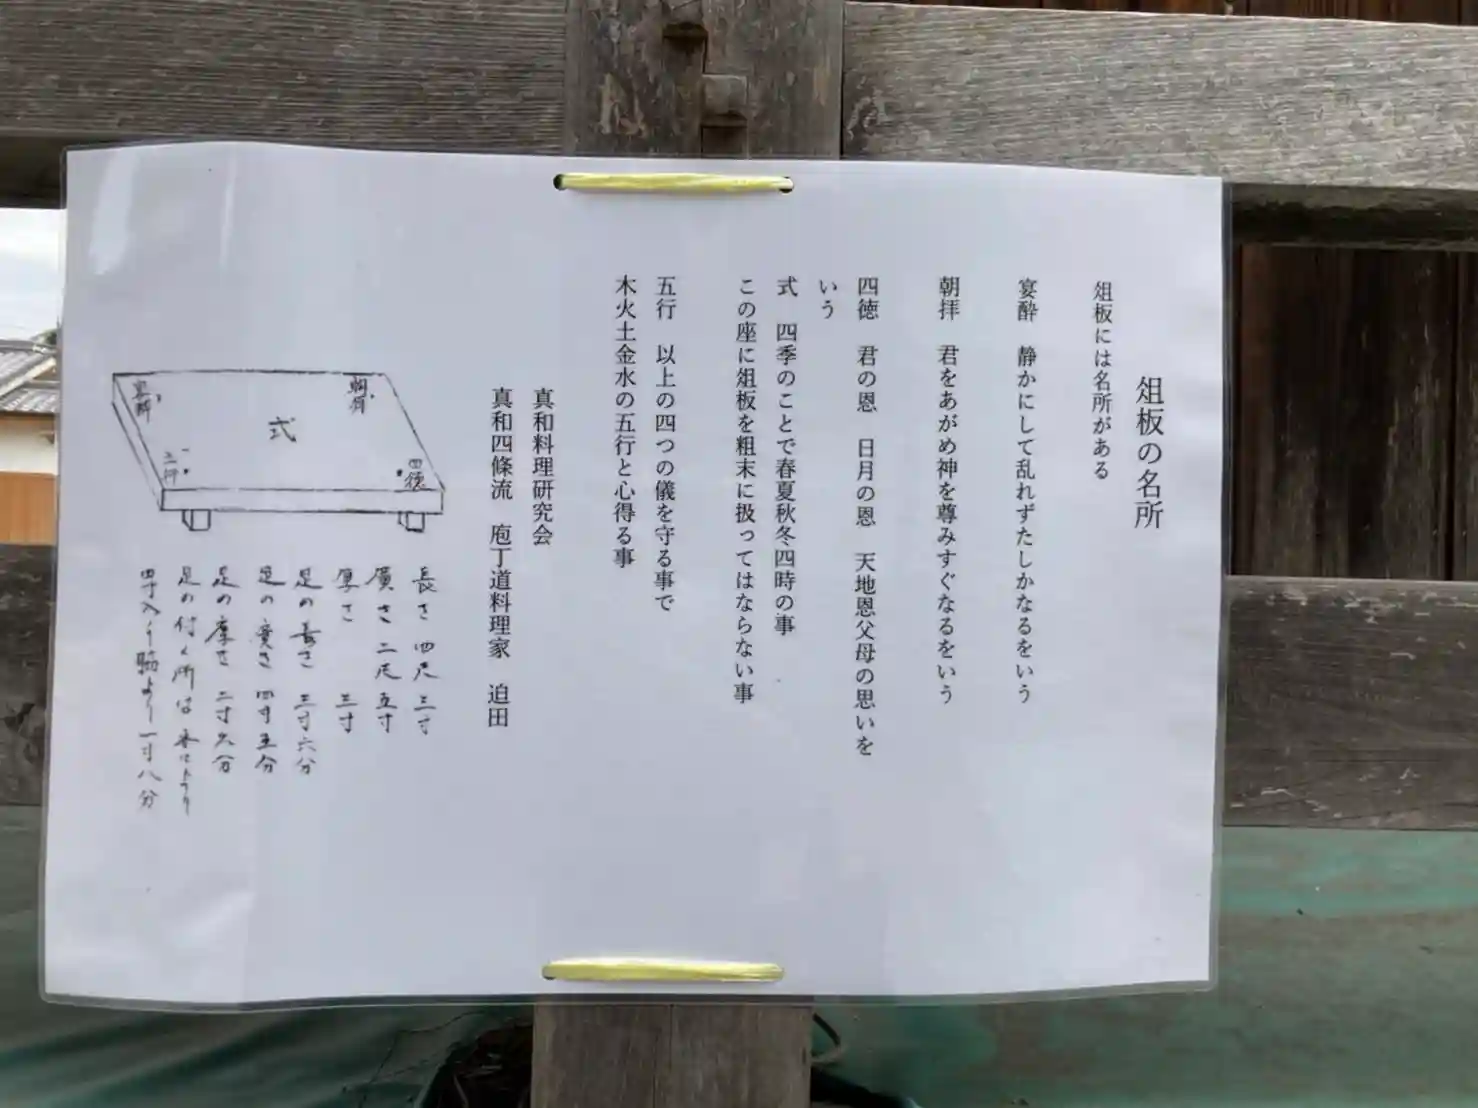 俎板の名所
俎板には名所がある
宴酔　静かにして乱れずたしかなるをいう
朝拝　君をあがめ神を尊みすぐなるをいう
四徳　君の恩　日月の恩　天地恩父母の思いを
いう
式　四季のことで春夏秋冬四時の事
この座に俎板を粗末に扱ってはならない事
五行　以上の四つの儀を守る事で
木火土金水の五行と心得る事
真和料理研究会
真和四條流　庖丁道料理家　迫田
宴酔
朝拝
式
五行
四徳
長さ　四尺三寸
廣さ　二尺五寸
厚さ　三寸
足の長さ　三寸六分
足の廣さ　四寸五分
足の厚さ　二寸八分
足の付く所は木口より
四寸入り脇より一寸八分